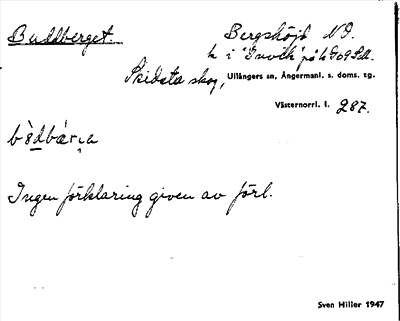 Buddberget. Bergshöjd NO.
h i "Invik" på G09SM.
Skidsta skog, Ullångers sn, Ångermanl. s. doms. tg.
Västernorrl. l. 287.
Ingen förklaring given av förf.
Sven Hiller 1947